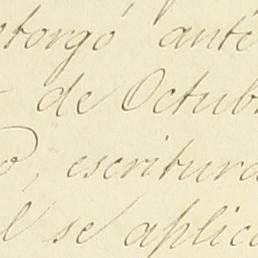 otorgó ante
de Octub
, escritura
l se aplica